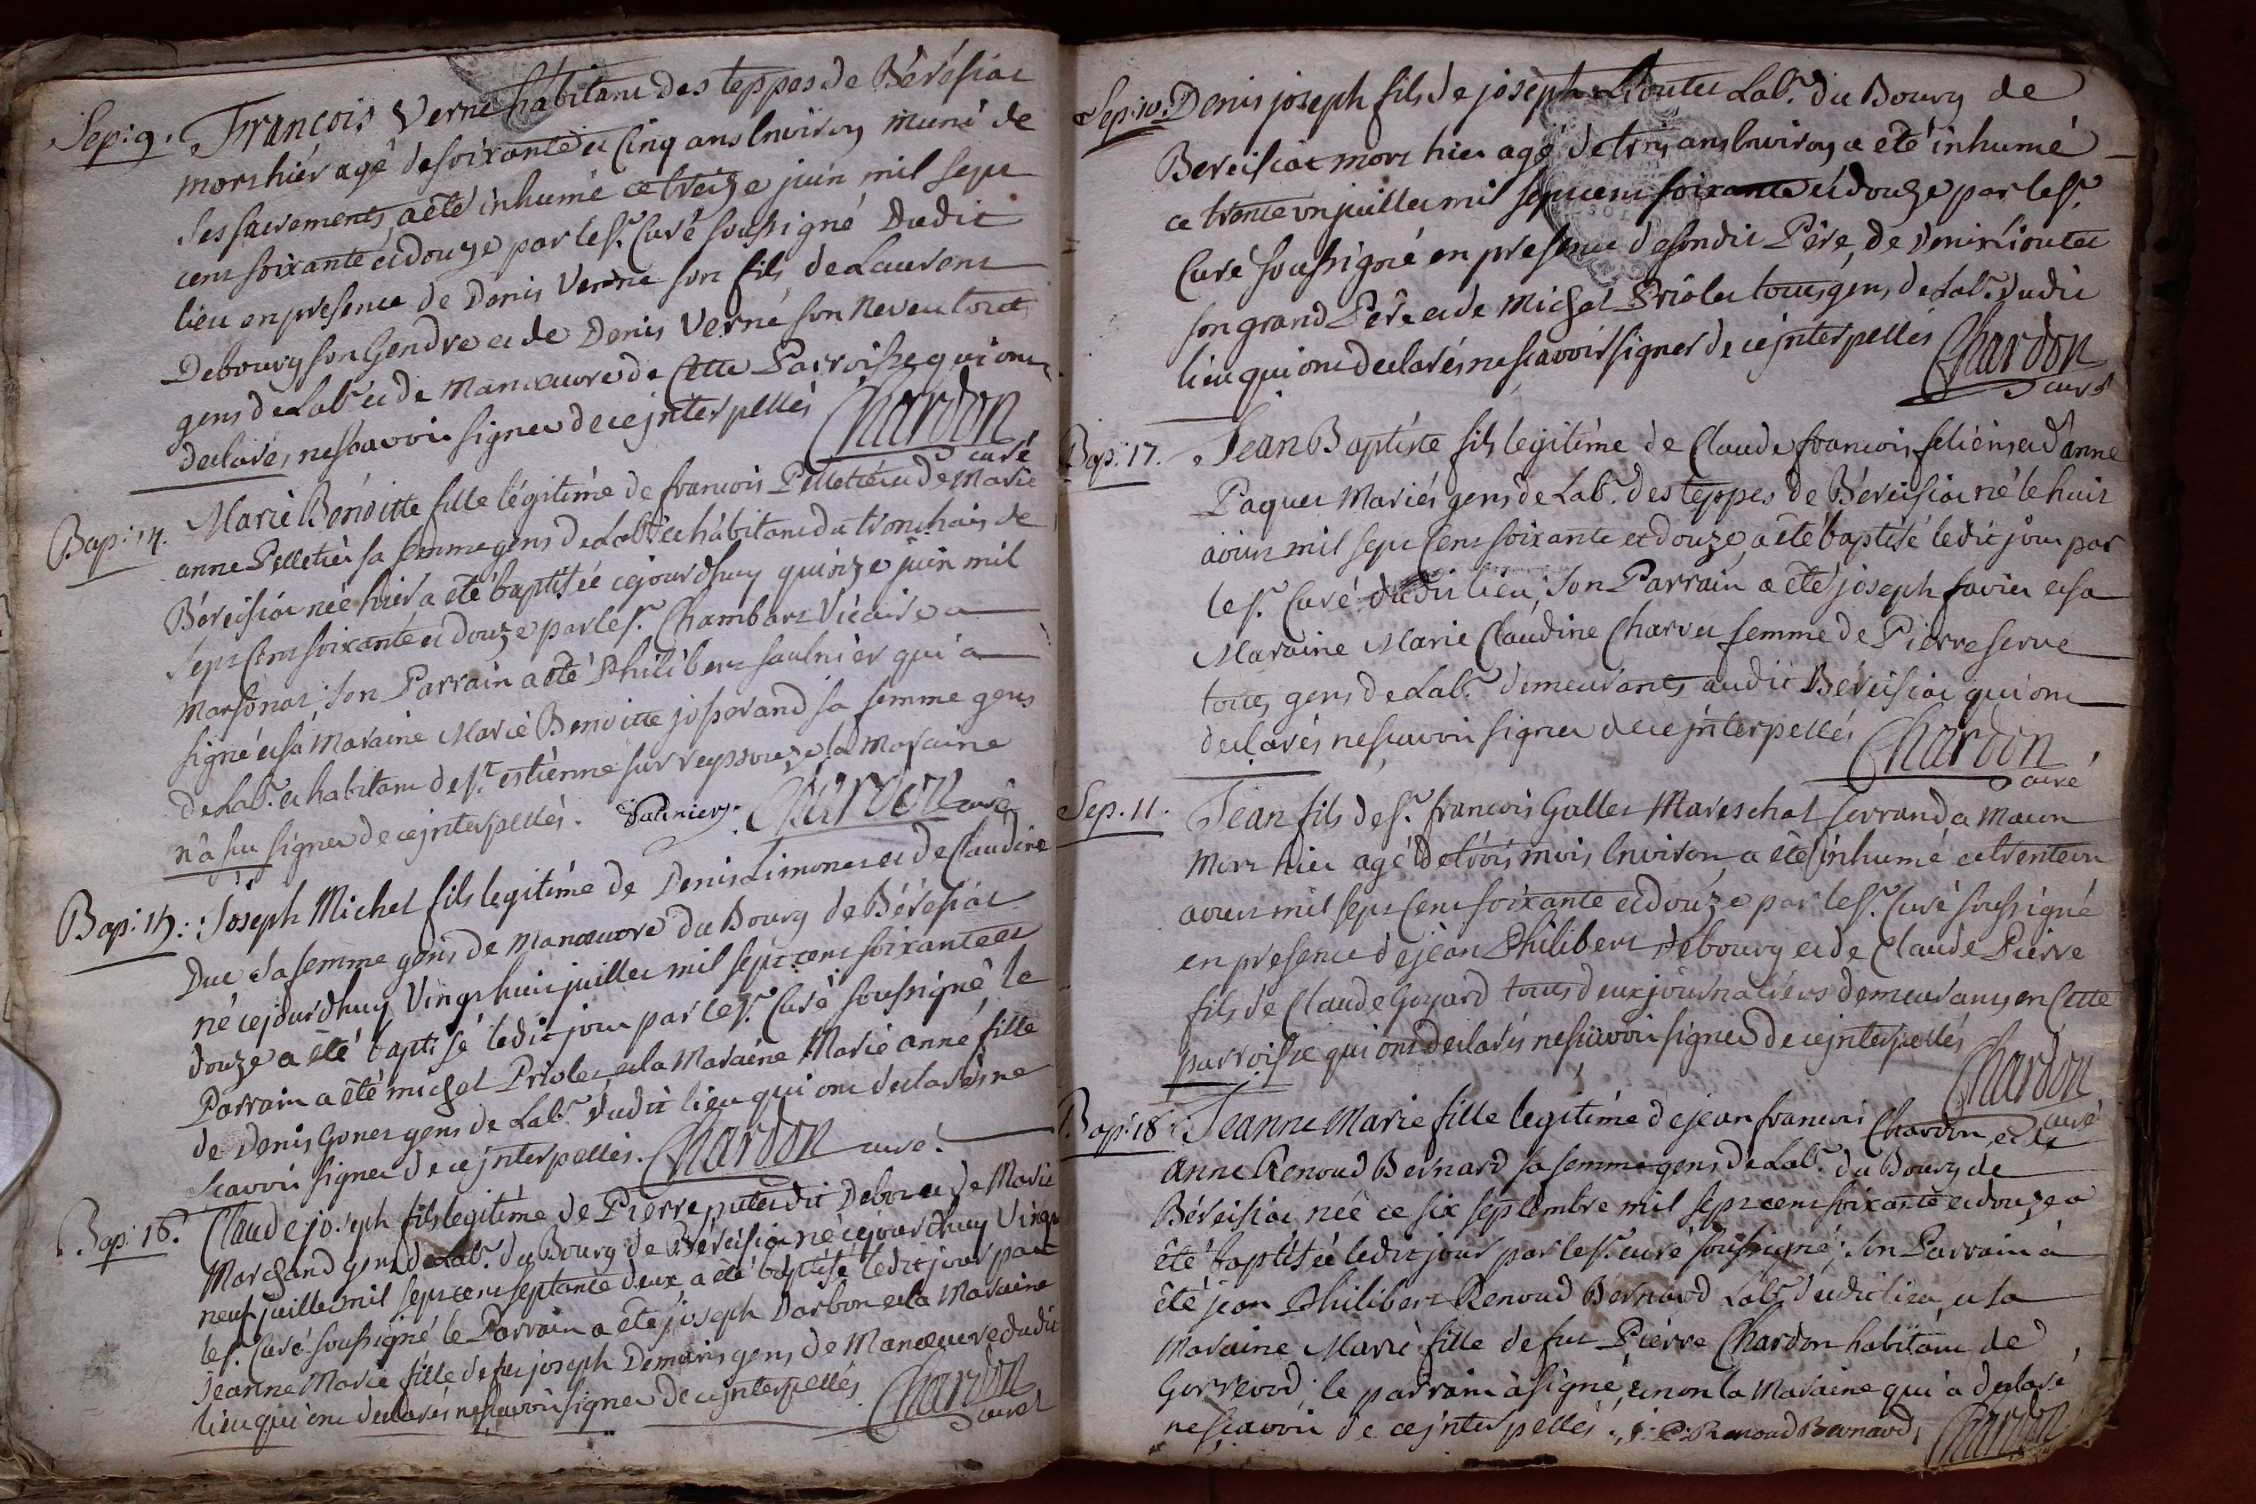 Sep: 9. François Verne habitant des teppes de Béréisiat
mort hiér agé de soixante et Cinq ans Environ muni de
ses sacrements, a été inhumé ce treize juin mil sept
cent soixante et douze par le Sr. Curé soussigné Dudit
lieu en présence de Denis Verne son fils, de Laurent
Debourg son Gendre et de Denis Verne son Neveu tous
gens de Labr et de Manœuvre de Cette Parroisse qui ont
declarés ne scavoir signer de ce jnterpellés Chardon
curé
Bap: 14. Marie Bénoitte fille légitime de francois Pelletier et de Marie
anne Pelletier sa femme gens de Labr. et habitant du tronchais de
Béreisiat née hiér a été baptisée cejourdhuy quinze juin mil
sept Cent soixante et douze par le Sr. Chambart Vicaire a
Marsonat: son Parrain a été Philibert saulnier qui a
signé et sa Maraine Marie Benoitte josserand sa femme gens
de Labr. et habitant de St. estienne sur reyssouze la Maraine
n'a scu signer de ce jnterpellés. Saunier. Chardon curé
Bap: 15: Joseph Michel fils legitime de Denis Limonet et de Claudine
Duc sa femme gens de Manœuvre du Bourg de Béreisiat
né cejourdhuy Vingt huit juillet mil sept cent soixante et
douze a été baptisé ledit jour par le Sr. Curé soussigné le
Parrain a été michel Priolet et la Maraine Marie anne fille
de Denis Gonet gens de Labr. dudit lieu qui ont declarés ne
scavoir signer de ce jnterpellés. Chardon curé.
Bap: 16. Claude joseph fils legitime de Pierre putet dit Debost et de Marie
Marchand gens de Labr. du Bourg de Béreisiat né cejourdhuy Vingt
neuf juillet mil sept cent septante deux a été baptisé ledit jour par
le Sr. Curé soussigné le Parrain a été joseph Darbon et la Maraine
Jeanne Marie fille de feu joseph Demaris gens de Manœuvre dudit
lieu qui ont declarés ne scavoir signer de ce jnterpellés. Chardon
curé
Sep: 10. Denis joseph fils de joseph Lioutet Labr. du Bourg de
Bereisiat mort hier agé de trois ans Environ a été inhumé
ce trente un juillet mil sept cent soixante et douze par le Sr.
Curé soussigné en presence de son dit Pére, de Denis Lioutet
son grand Pére et de Michel Priolet tous gens de Labr. dudit
lieu qui ont declarés ne scavoir signer de ce jnterpellés Chardon
curé
Bap: 17. Jean Baptiste fils legitime de Claude francois feliens et d'anne
Paquet Mariés gens de Labr. des teppes de Béreisiat né le huit
aoust mil sept Cent soixante et douze, a été baptisé ledit jour par
le Sr. Curé dudit lieu, son Parrain a été joseph favier et sa
Maraine Marie Claudine Charvet femme de Pierre serve
tous gens de Labr. demeurants audit Béreisiat qui ont
declarés ne scavoir signer de ce jnterpellés Chardon
curé
Sep: 11. Jean fils de Sr. francois Gallet Mareschal ferrand a Macon
Mort hier agé de trois mois Environ a été inhumé ce trente un
aoust mil sept Cent soixante et douze par le Sr. Curé soussigné
en presence de jean Philibert Debourg et de Claude Pierre
fils de Claude Goyard tous deux journaliérs demeurants en Cette
parroisse qui ont declarés ne scavoir signer de ce jnterpellés
Chardon
curé
Bap: 18. Jeanne Marie fille legitime de jean francois Chardon et de
anne Renoud Bernard sa femme gens de Labr. du Bourg de
Béreisiat née ce six septembre mil sept cent soixante et douze a
été baptisée ledit jour par le Sr. curé soussigné; son Parrain a
été jean Philibert Renoud Bernard Labr. dudit lieu, et sa
Maraine Marie fille de fut Pierre Chardon habitant de
Gorrevod; le parrain a signé, et non la Maraine qui a declaré
ne scavoir de ce jnterpellés. j: P: Renoud Bernard, Chardon